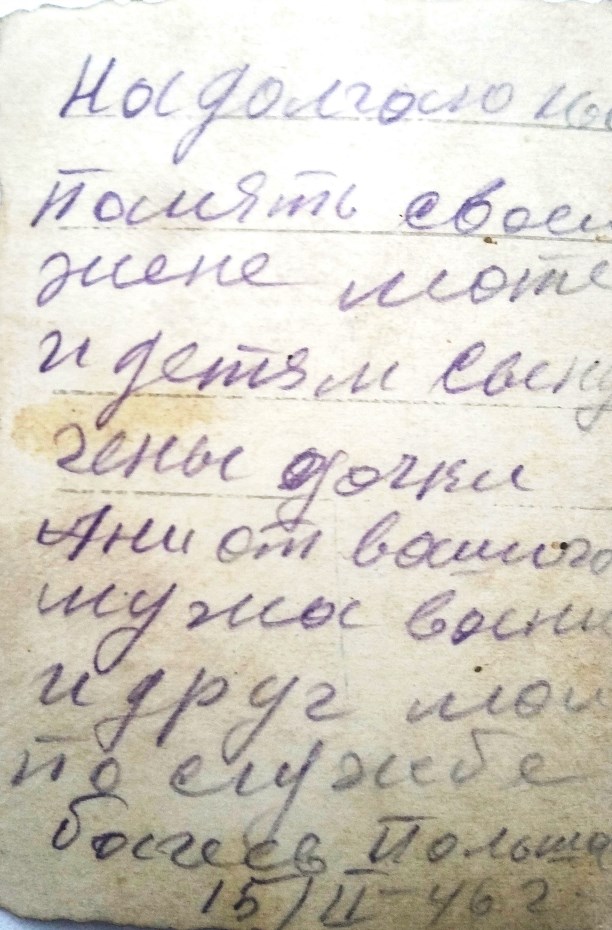 На долгаю на
память своей
жене моте
и детям сыну
гены дочки
Ани от вашиго
мужа вани
и друг мой
по службе
Польша
15/II-46 г.